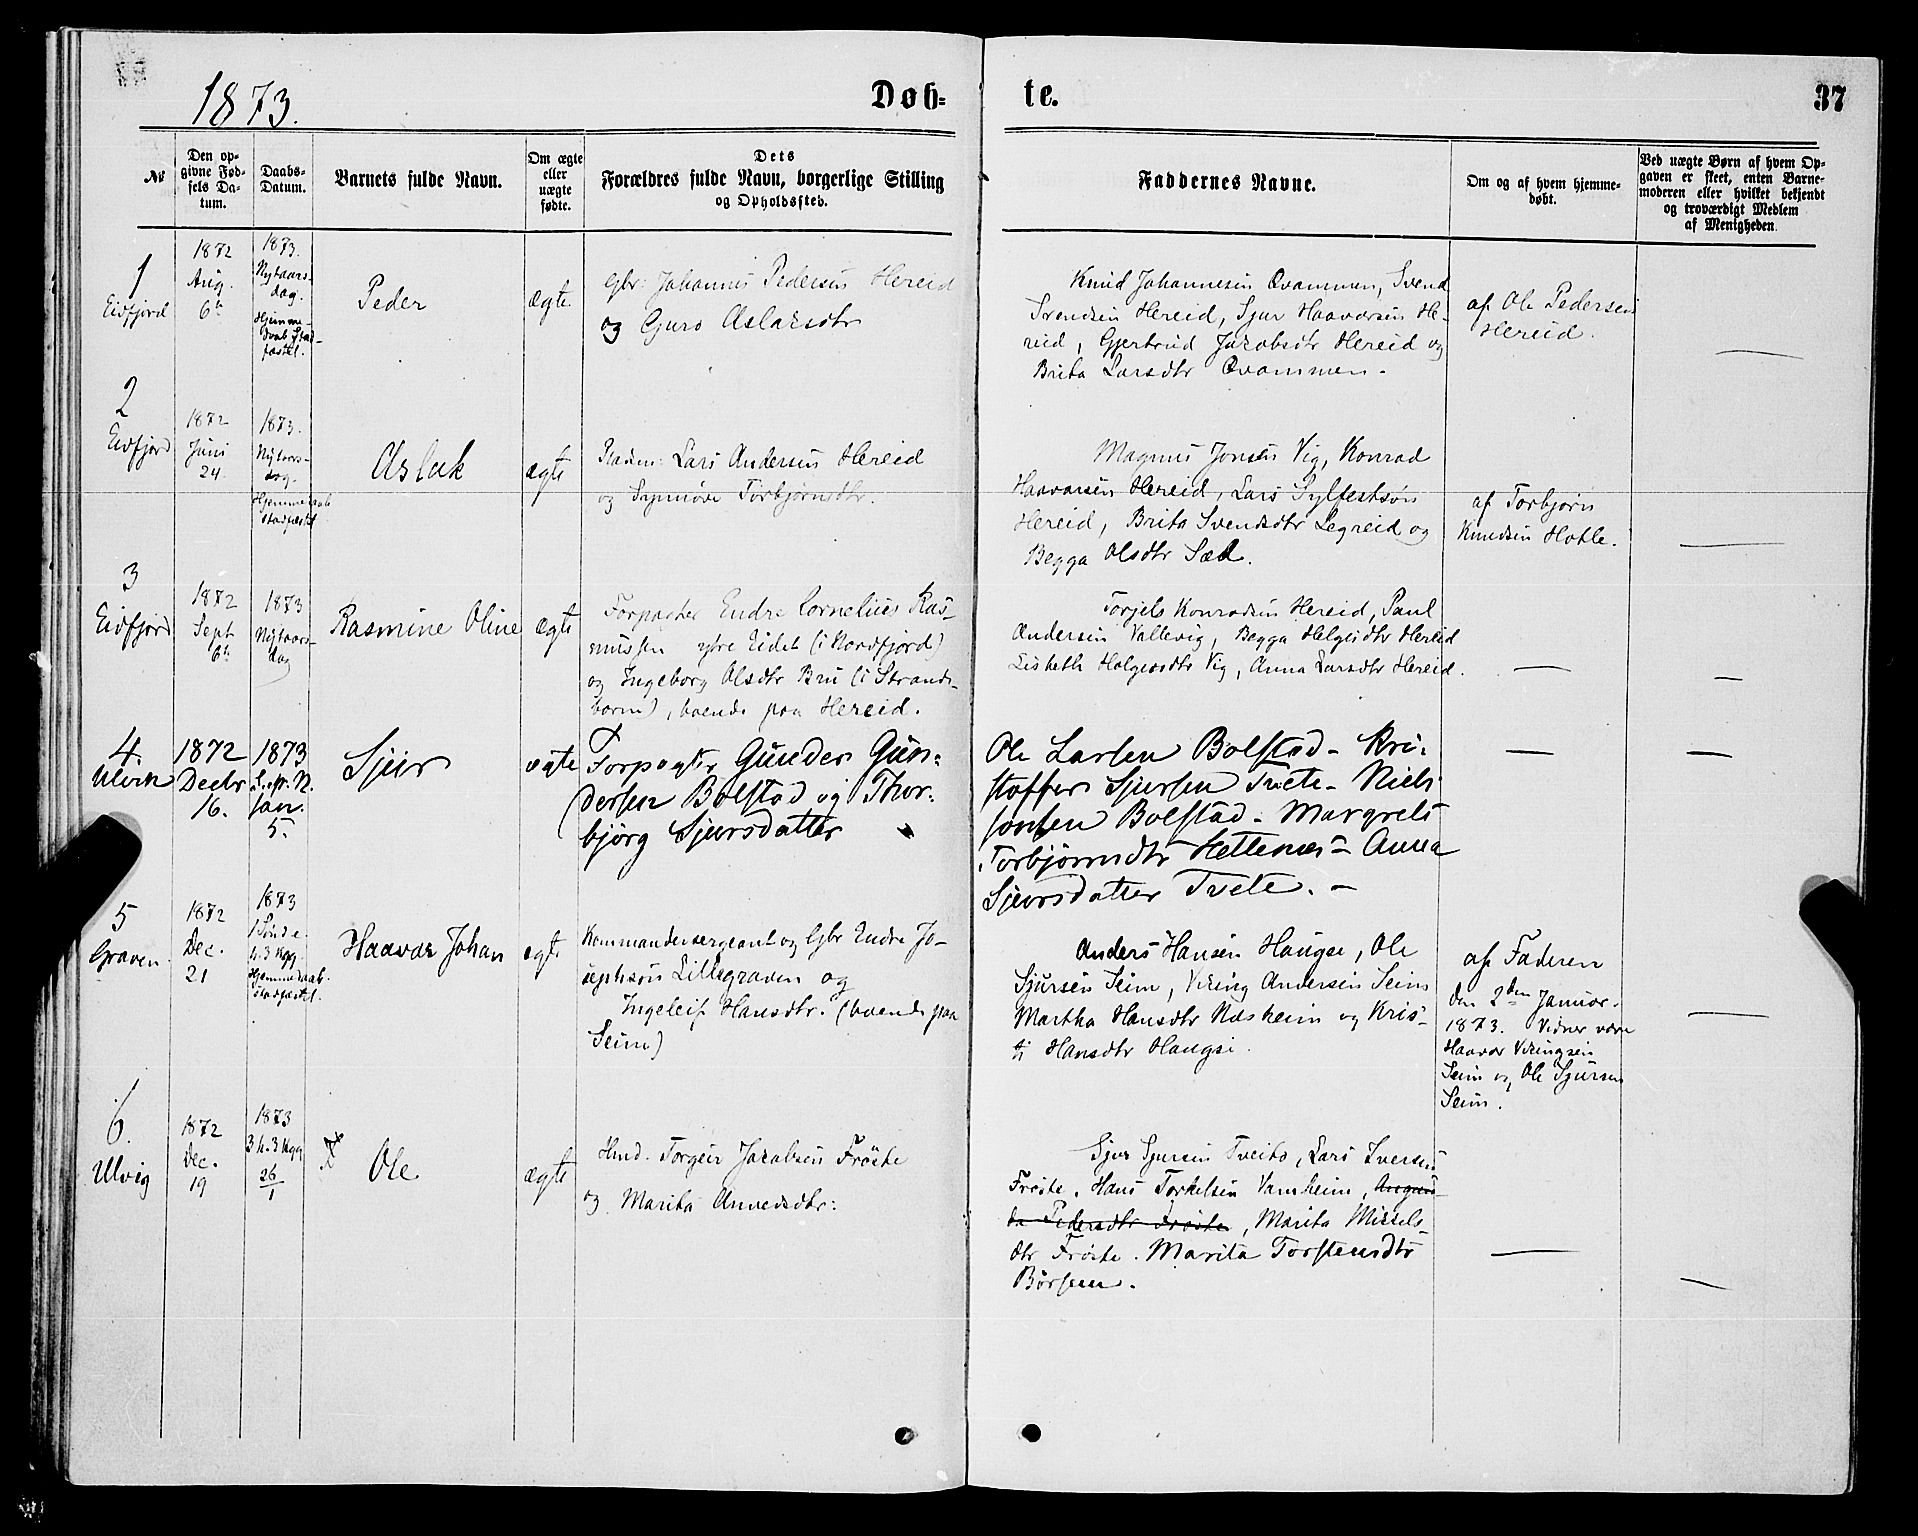 1873.
Døb-
te.
37
No
Den op-
givne Fød-
sels Da-
tum.
Daabs-
Datum.
Barnets fulde Navn.
Om ægte
eller
uægte
fødte.
Dets
Forældres fulde Navn, borgerlige Stilling
og Opholdssted.
Faddernes Navne.
Om og af hvem hjemme-
døbt.
Ved uægte Børn af hvem Op-
gaven er skeet, enten Barne-
moderen eller hvilket bekjendt
og troværdigt Medlem
af Menigheden.
1
Eidfjord
1872
Aug.
6te
1873.
Nytaars-
dag.
Hjemme-
daab Stad-
fæstet.
Peder
Ægte
Gbr: Johannes Pedersen Hereid
og Guro Aslaksdtr
Knud Johannesen Qvammen, Svend
Svendsen Hereid, Sjur Haavarsen He-
reid, Gjertrud Jacobsdtr Hereid og
Brita Larsdtr Qvammen.
af Ole Pedersen
Hereid.
2
Eidfjord
1872
Juni
24.
1873.
Nytaars-
dag.
Hjemmedaab
stadfæstet
Aslak
ægte
Lars Andersen Hereid
og Synnøve Torbjørnsdtr.
Magnus Jonsen Vig, Konrad
Haavarsen Hereid, Lars Sylfestsøn
Hereid, Brita Svendsdtr Legreid og
Begga Olsdtr Sæd.
af Torbjørn
Knudsen Hotle.
3
Eidfjord
1872
Sept
6te
1873
Nytaars-
dag
Rasmine Oline
Ægte
Forpagter Endre Cornelius Ras-
mussen ytre Eidet (i Nordfjord)
og Ingeborg Olsdtr Bru (i Strande-
barm), boende paa Hereid.
Torjels Konradsen Hereid, Paul
Andersen Vallevig, Begga Helgesdtr Hereid
Lisbeth Holgersdtr Vig, Anna Larsdtr Hereid.
4.
Ulvik
1872
Decbr
16.
1873
S. e. N.
Jan.
5.
Sjur
ægte
Forpagter Gunder Gun-
dersen Bolstad og Thor-
bjørg Sjursdatter
Ole Larsen Bolstad - Kri-
stoffer Sjursen Tveite - Niels
Jonsen Bolstad - Margrete
Torbjørnsdtr Hettenes - Anna
Sjursdatter Tvete. -
5
Graven.
1872
Dec.
21
1873
1 Sønd e.
h. 3 Kgg
Hjemmedaab
stadfæstet.
Haavar Johan
ægte
Kommandersergeant og Gbr Endre Jo-
sephsøn Lillegraven og
Ingeleif Hansdtr. (boende paa
Seim)
Anders Hansen Haugse, Ole
Sjursen Seim, Viking Andersen Seim
Martha Hansdtr Næsheim og Kris-
ti Hansdtr Haugse.
af Faderen
den 2den Januar.
1873. Vidner vare
Haavar Vikingsen
Seim og Ole Sjursen
Seim.
6.
Ulvig
1872
Dec.
19
1873
3 h. 3 Kgg
26/1
Ole
ægte
Hmd. Torgeir Jacobsen Frøste
og Marita Anvedsdtr:
Sjur Sjursen Tveito, Lars Iversen
Frøste, Hans Torkelsen Vamheim, Augus-
ta Pedersdtr Frøste, Marita Mikkels-
dtr Frøste. Marita Torstensdtr
Børsem.